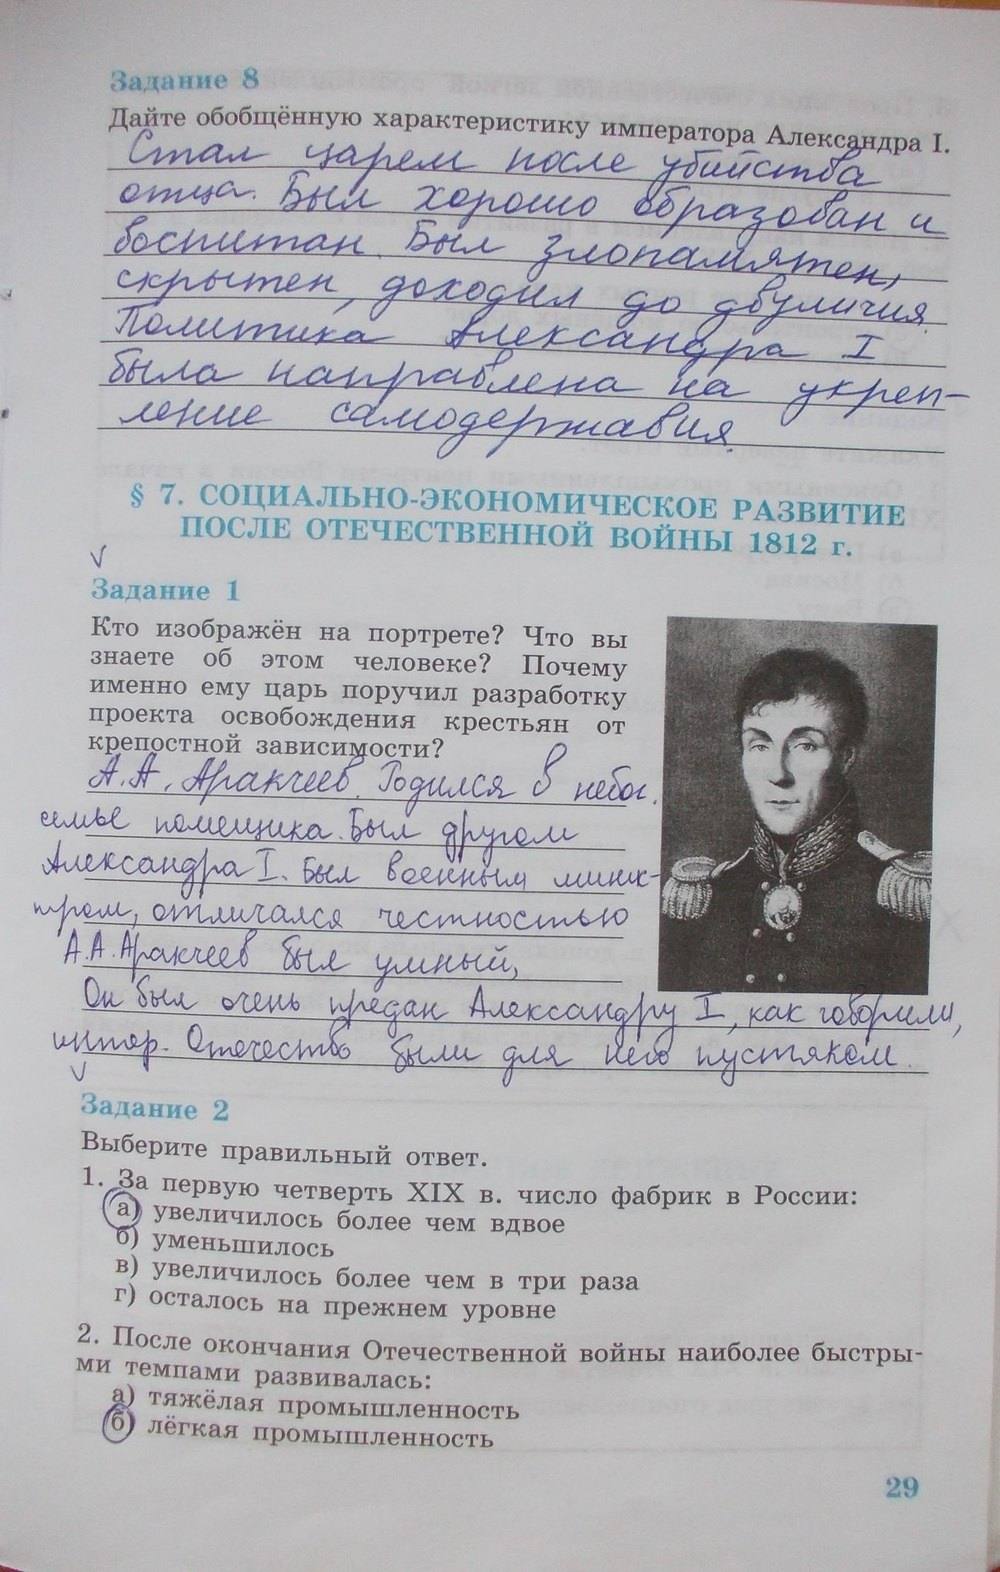 Задание 8
Дайте обобщённую характеристику императора Александра I.
Стал царем после убийства
отца. Был хорошо образован и
воспитан. Был злопамятен,
скрытен, доходил до двуличия.
Политика Александра I
была направлена на укреп-
ление самодержавия.
§ 7. СОЦИАЛЬНО-ЭКОНОМИЧЕСКОЕ РАЗВИТИЕ
ПОСЛЕ ОТЕЧЕСТВЕННОЙ ВОЙНЫ 1812 г.
Задание 1
Кто изображён на портрете? Что вы
знаете об этом человеке? Почему
именно ему царь поручил разработку
проекта освобождения крестьян от
крепостной зависимости?
А.А. Аракчеев. Родился в небог.
семье помещика. Был другом
Александра I. Был военным минис-
тром, отличался честностью
А.А. Аракчеев был умный,
Он был очень предан Александру I, как говорили,
интер. Отечество были для него пустяком.
Задание 2
Выберите правильный ответ.
1. За первую четверть XIX в. число фабрик в России:
а) увеличилось более чем вдвое
б) уменьшилось
в) увеличилось более чем в три раза
г) осталось на прежнем уровне
2. После окончания Отечественной войны наиболее быстры-
ми темпами развивалась:
а) тяжёлая промышленность
б) лёгкая промышленность
29